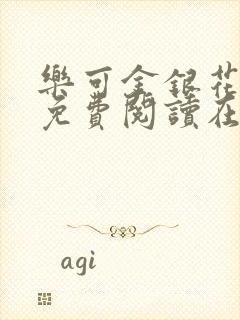 樂可金銀花
免費閱讀在
agi